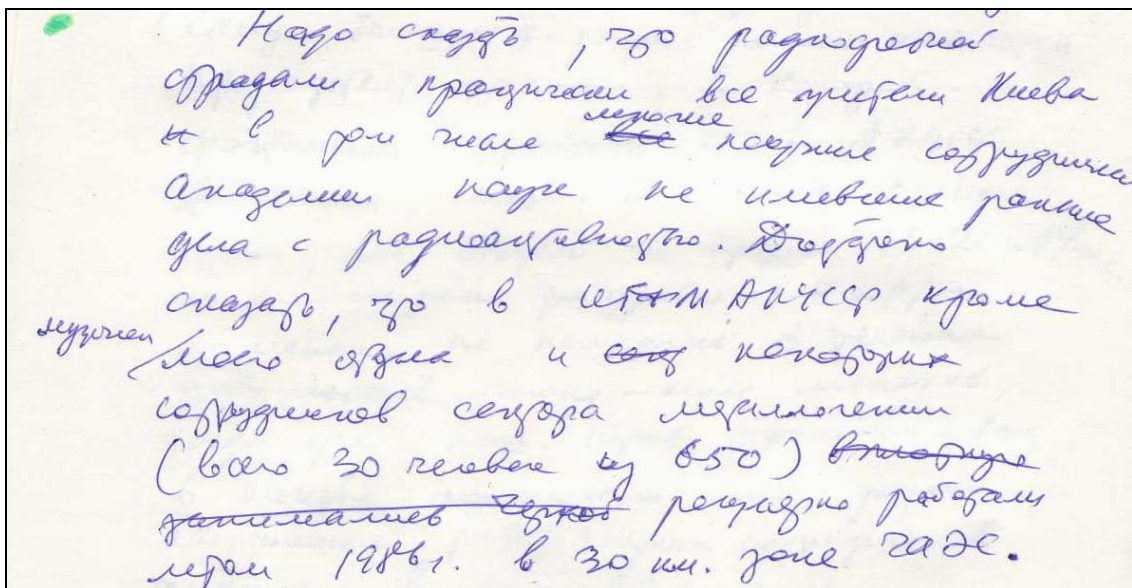 Надо сказать, что радиофобией
страдали практически все жители Киева
и в том числе многие научные сотрудники
Академии наук не имевшие раньше
дела с радиоактивностью. Достаточно
сказать, что в АН УССР кроме
моего отдела и некоторых
сотрудников сектора
(всего 30 человек из 650)
регулярно работали
летом 1986 г. в 30 км. зоне ЧАЭС.